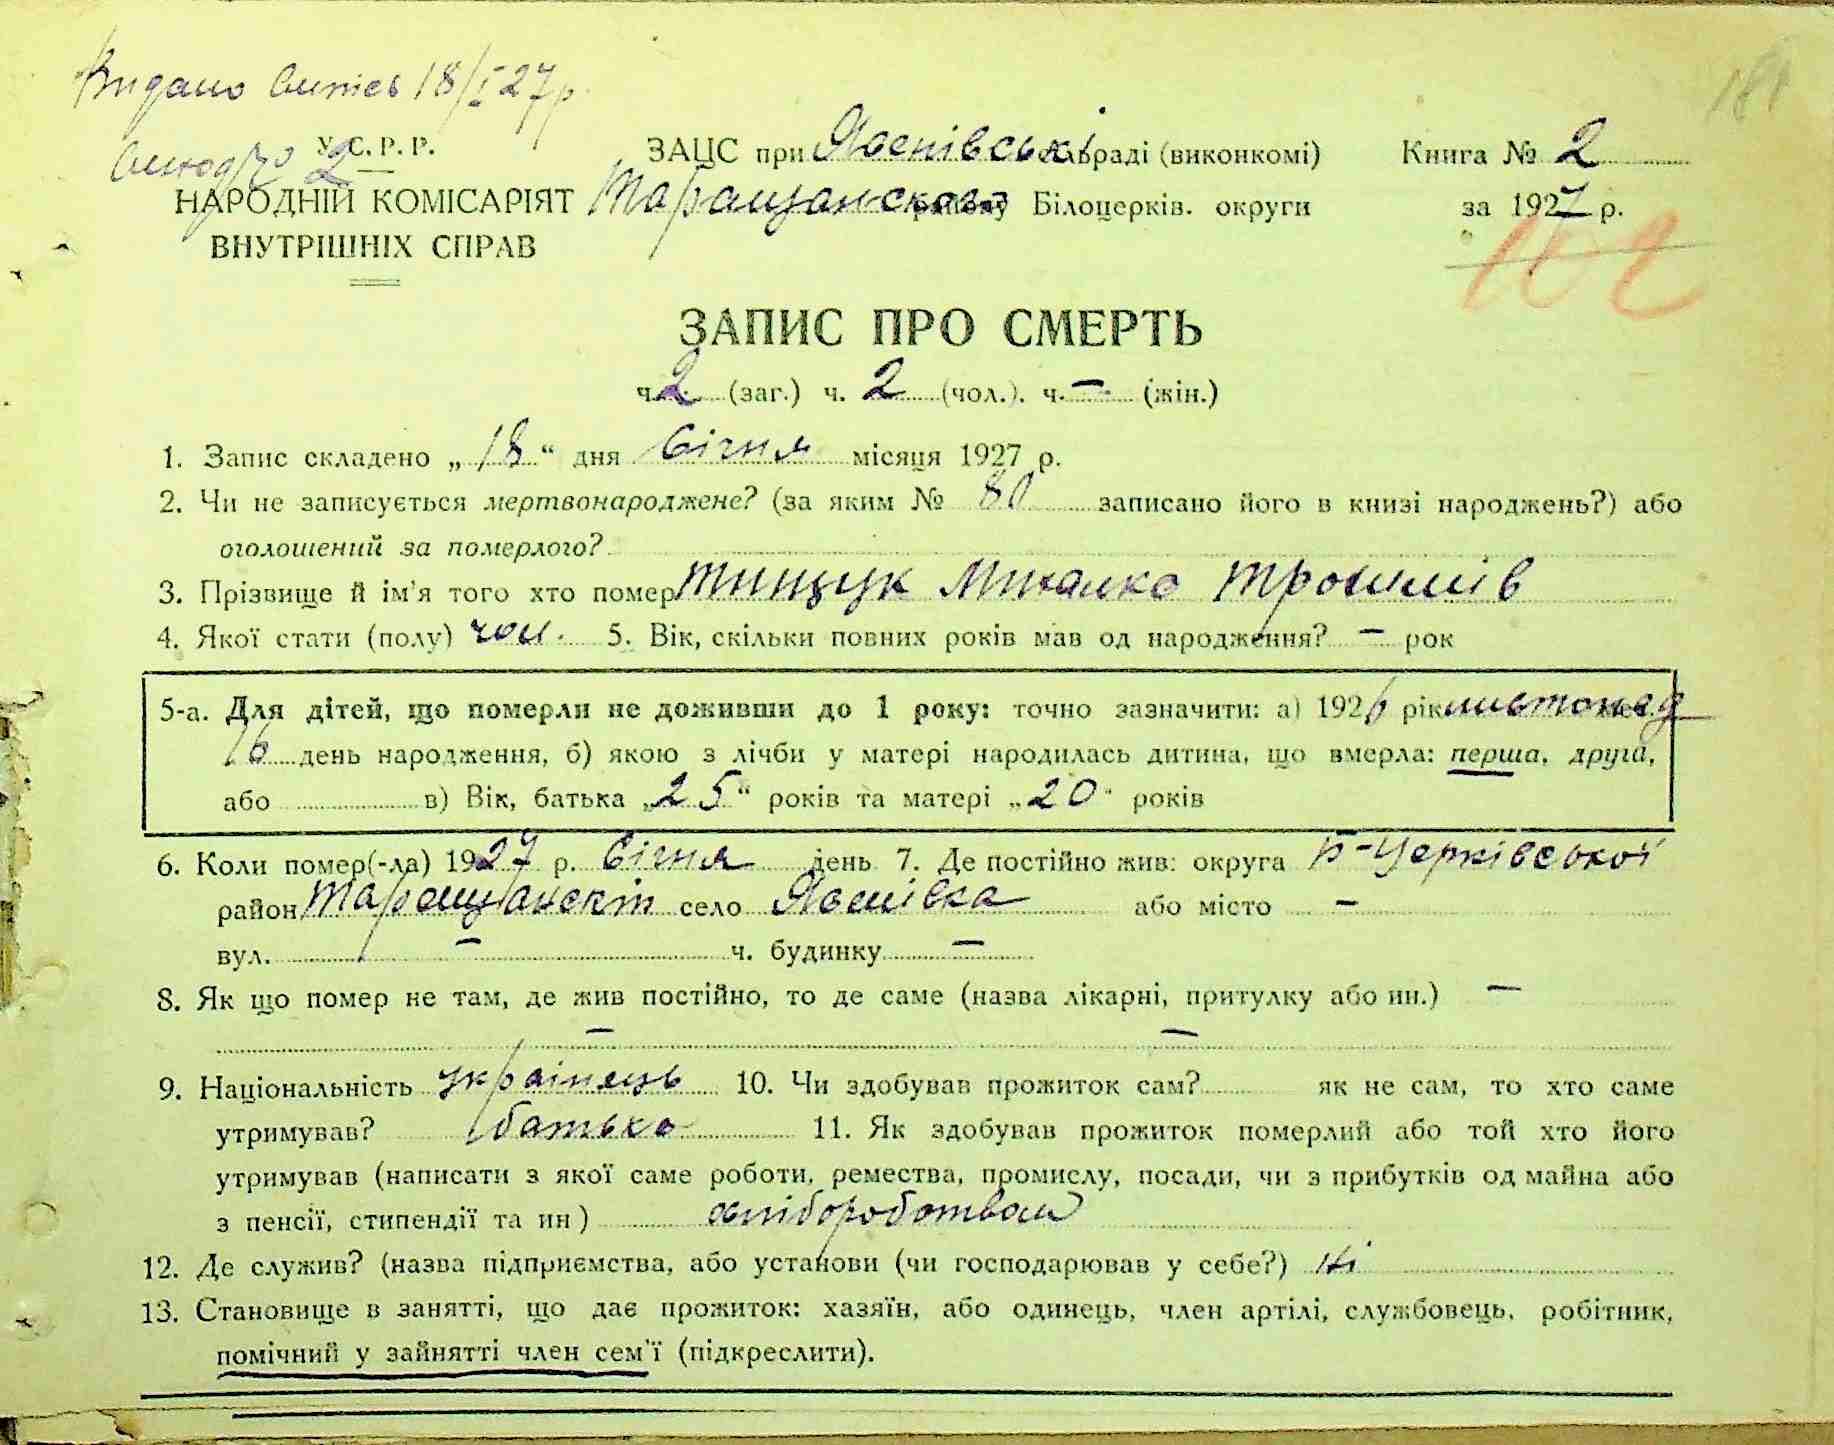 Видано Витяг 18/I 27 р.
181
У.С.Р.Р.
НАРОДНІЙ КОМІСАРІЯТ
ВНУТРІШНІХ СПРАВ
ЗАЦС при Явенівські сільраді (виконкомі)
Таращанского району Білоцерків. округи
Книга № 2
за 1927 р.
ЗАПИС ПРО СМЕРТЬ
ч. 2 (заг.) ч. 2 (чол.). ч. — (жін.)
1. Запис складено „18“ дня Січня місяця 1927 р.
2. Чи не записується мертвонароджене? (за яким № 80 записано його в книзі народжень?) або
оголошений за померлого?
3. Прізвище й ім'я того хто помер Тищук Михалко Трохимів
4. Якої стати (полу) чол. 5. Вік, скільки повних років мав од народження? — рок
5-а. Для дітей, що померли не доживши до 1 року: точно зазначити: а) 1926 рік листопад
16 день народження, б) якою з лічби у матері народилась дитина, що вмерла: перша, друга,
або в) Вік, батька „25“ років та матері „20“ років
6. Коли помер(-ла) 1927 р. Січня день 7. Де постійно жив: округа Б-Церківської
район Таращанскій село Явенівка або місто —
вул. — ч. будинку —
8. Як що помер не там, де жив постійно, то де саме (назва лікарні, притулку або ин.) —
— —
9. Національність українець 10. Чи здобував прожиток сам? як не сам, то хто саме
утримував? батько 11. Як здобував прожиток померлий або той хто його
утримував (написати з якої саме роботи, ремества, промислу, посади, чи з прибутків од майна або
з пенсії, стипендії та ин) хліборобством
12. Де служив? (назва підприємства, або установи (чи господарював у себе?) ні
13. Становище в занятті, що дає прожиток: хазяїн, або одинець, член артілі, службовець, робітник,
помічний у зайнятті член сем'ї (підкреслити).